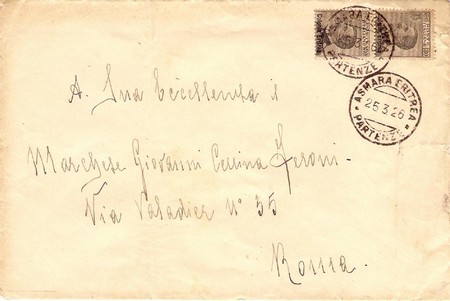 ASMARA ERITREA
PARTENZE
ASMARA ERITREA
25.3.26
PARTENZE
A. Sua Eccellenza il
Marchese Giovanni Cellina Feroni.
Via Valadier N° 35
Roma.